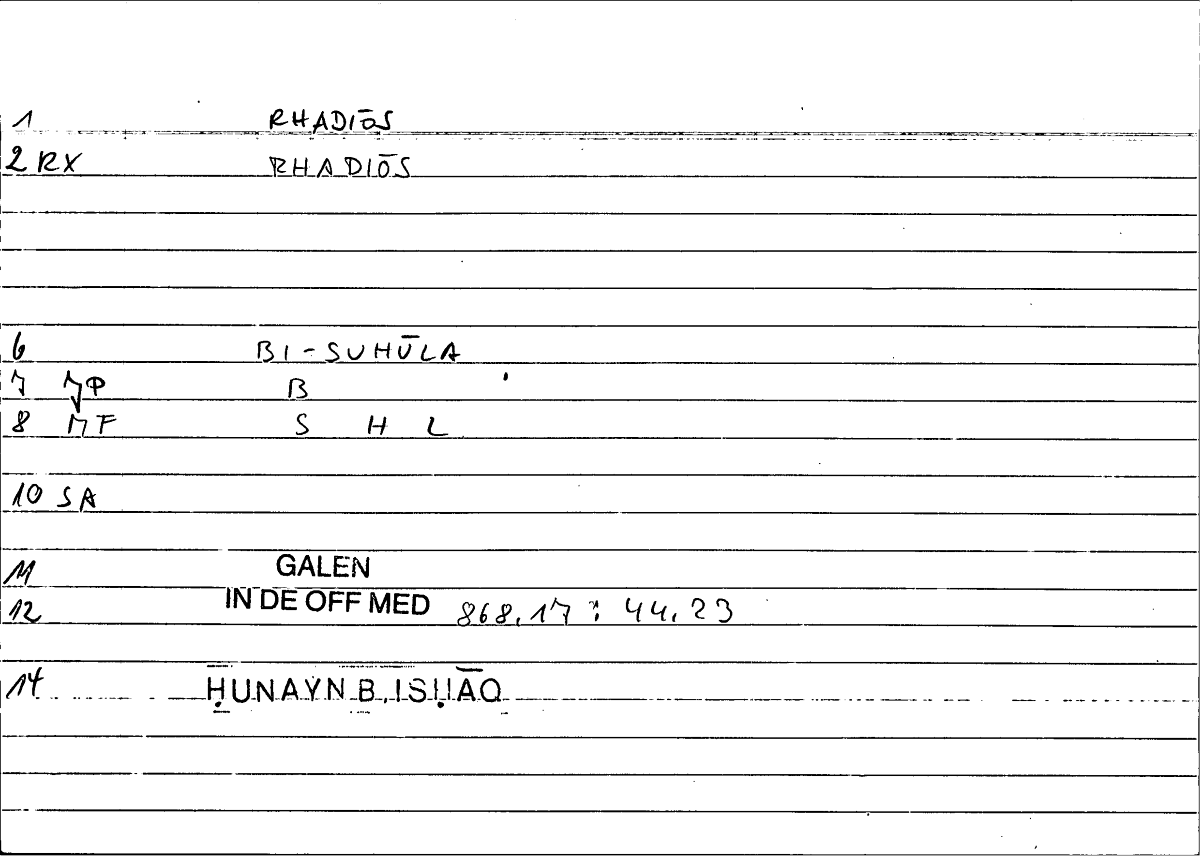 1 RHADIŌS
2 RX RHADIŌS
6 BI-SUHŪLA
7 B
8 S H L
10 SA
11 GALEN
12 IN DE OFF MED 868.17 : 44.23
14 ḤUNAYN B. ISḤĀQ